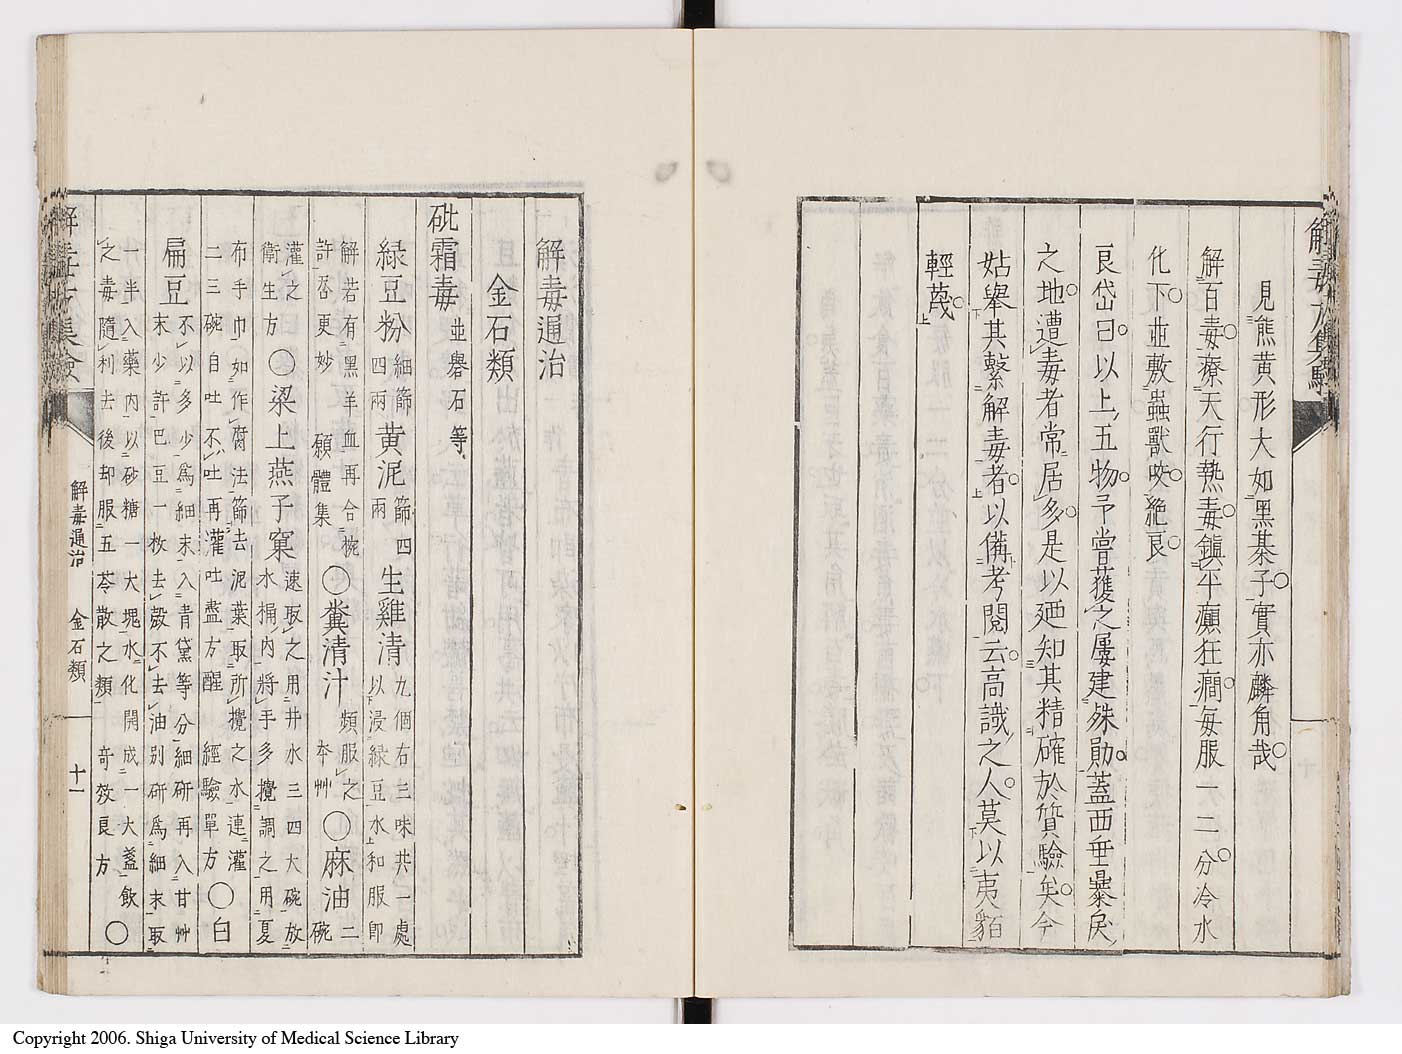 見熊黄形大如黒棊子實亦麟角哉
解百毒療天行熱毒鎮平癲狂癇毎服一二分冷水
化下並敷蟲獸咬絶良
良岱曰以上五物予嘗獲之屢建殊勛蓋西垂暴戻
之地遭毒者常居多是以廼知其精確於質驗矣今
姑舉其繋解毒者以備考閲云高識之人莫以夷貊
輕蔑
解毒通治
金石類
砒霜毒並礜石等
緑豆粉細篩四兩黄泥篩四兩生雞清九個右三味共一處以浸緑豆水和服即
解若有黒羊血再合一椀許呑更妙 頤體集○糞清汁類服之 本艸○麻油二碗
灌之 衛生方○梁上燕子窠速取之用井水三四大碗放水桶内將手多攪調之用夏
布手巾如作腐法篩去泥葉取所攪之水連灌二三碗自吐不吐再灌吐盡方醒 經驗單方○白
扁豆不以多少爲細末入青黛等分細研再入甘艸末少許巴豆一枚去殻不去油別研爲細末取
一半入藥内以砂糖一大塊水化開成一大盞飲之毒隨利去後却服五苓散之類 奇效良方○
解毒通治 金石類
十一
Copyright 2006. Shiga University of Medical Science Library